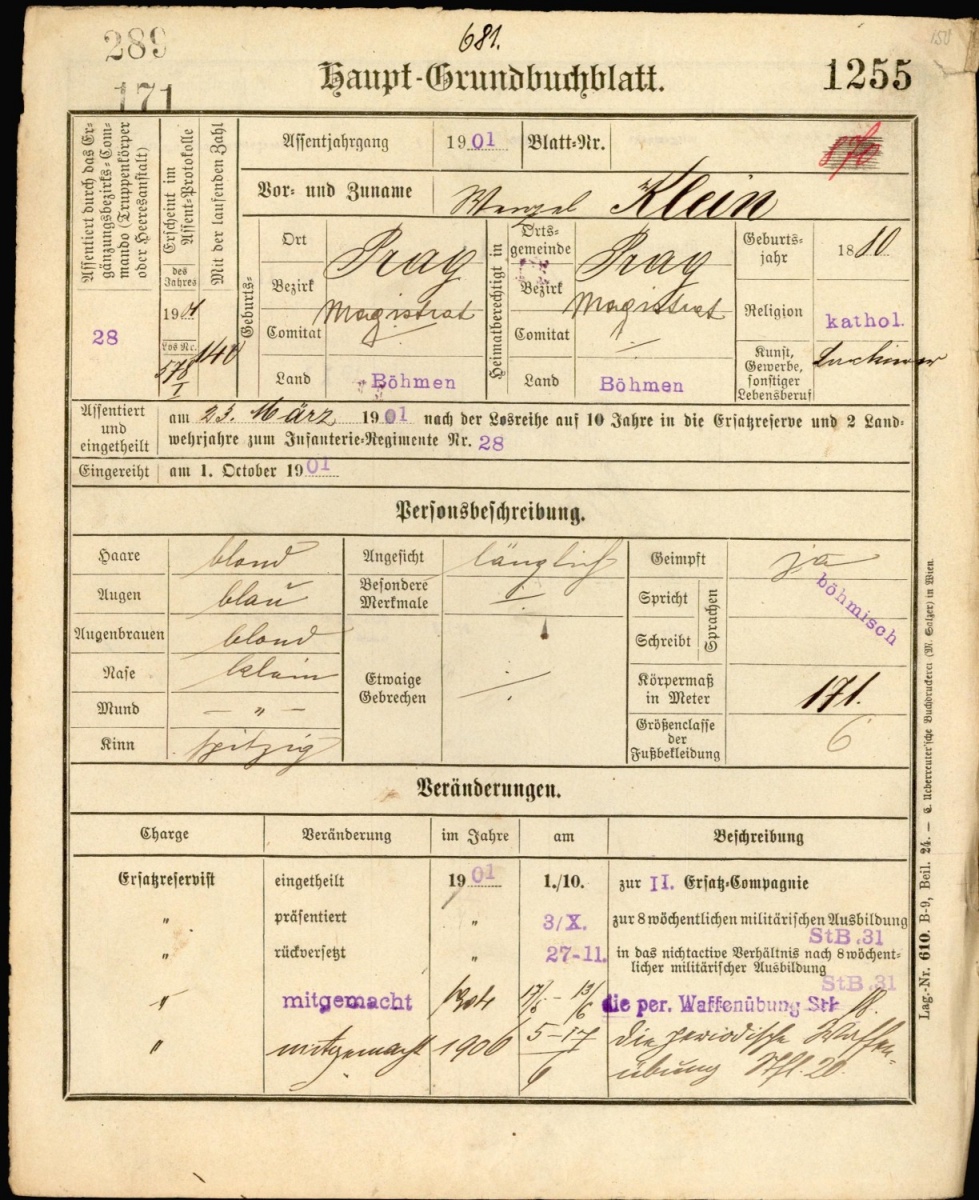 289
681.
150
171
Haupt-Grundbuchblatt.
1255
Assentiert durch das Er-
gänzungsbezirks-Com-
mando (Truppenkörper
oder Heeresanstalt)
28
Erscheint im
Assent-Protokolle
des
Jahres
1901
Los Nr.
578
I
Mit der laufenden Zahl
140
Assentjahrgang 1901 Blatt-Nr.
Vor- und Zuname Wenzel Klein
Geburts-
Ort Prag
Bezirk Magistrat
Comitat
Land Böhmen
Heimatberechtigt in
Orts-
gemeinde Prag
Bezirk Magistrat
Comitat
Land Böhmen
Geburts-
jahr 1880
Religion kathol.
Kunst,
Gewerbe,
sonstiger
Lebensberuf
Assentiert
und
eingetheilt
am 23. März 1901 nach der Losreihe auf 10 Jahre in die Ersatzreserve und 2 Land-
wehrjahre zum Infanterie-Regimente Nr. 28
Eingereiht am 1. October 1901
Personsbeschreibung.
Haare blond
Augen blau
Augenbrauen blond
Nase klein
Mund — „ —
Kinn spitzig
Angesicht länglich
Besondere
Merkmale ·/·
Etwaige
Gebrechen ·/·
Geimpft ja
Spricht
Schreibt
Sprachen
böhmisch
Körpermaß
in Meter 171.
Größenclasse
der
Fußbekleidung 6
Veränderungen.
Charge Veränderung im Jahre am Beschreibung
Ersatzreservist eingetheilt 1901 1./10. zur II. Ersatz-Compagnie
„ präsentiert „ 3/X. zur 8 wöchentlichen militärischen Ausbildung
StB.31
„ rückversetzt „ 27-11. in das nichtactive Verhältnis nach 8 wöchent-
licher militärischer Ausbildung
StB.31
„ mitgemacht 1904 die per. Waffenübung Stb 18.
„ mitgemacht 1906 5–17/6 die periodische Waffen-
übung 20.
Lag.-Nr. 610. B-9, Beil. 24. — C. Ueberreuter'sche Buchdruckerei (M. Salzer) in Wien.